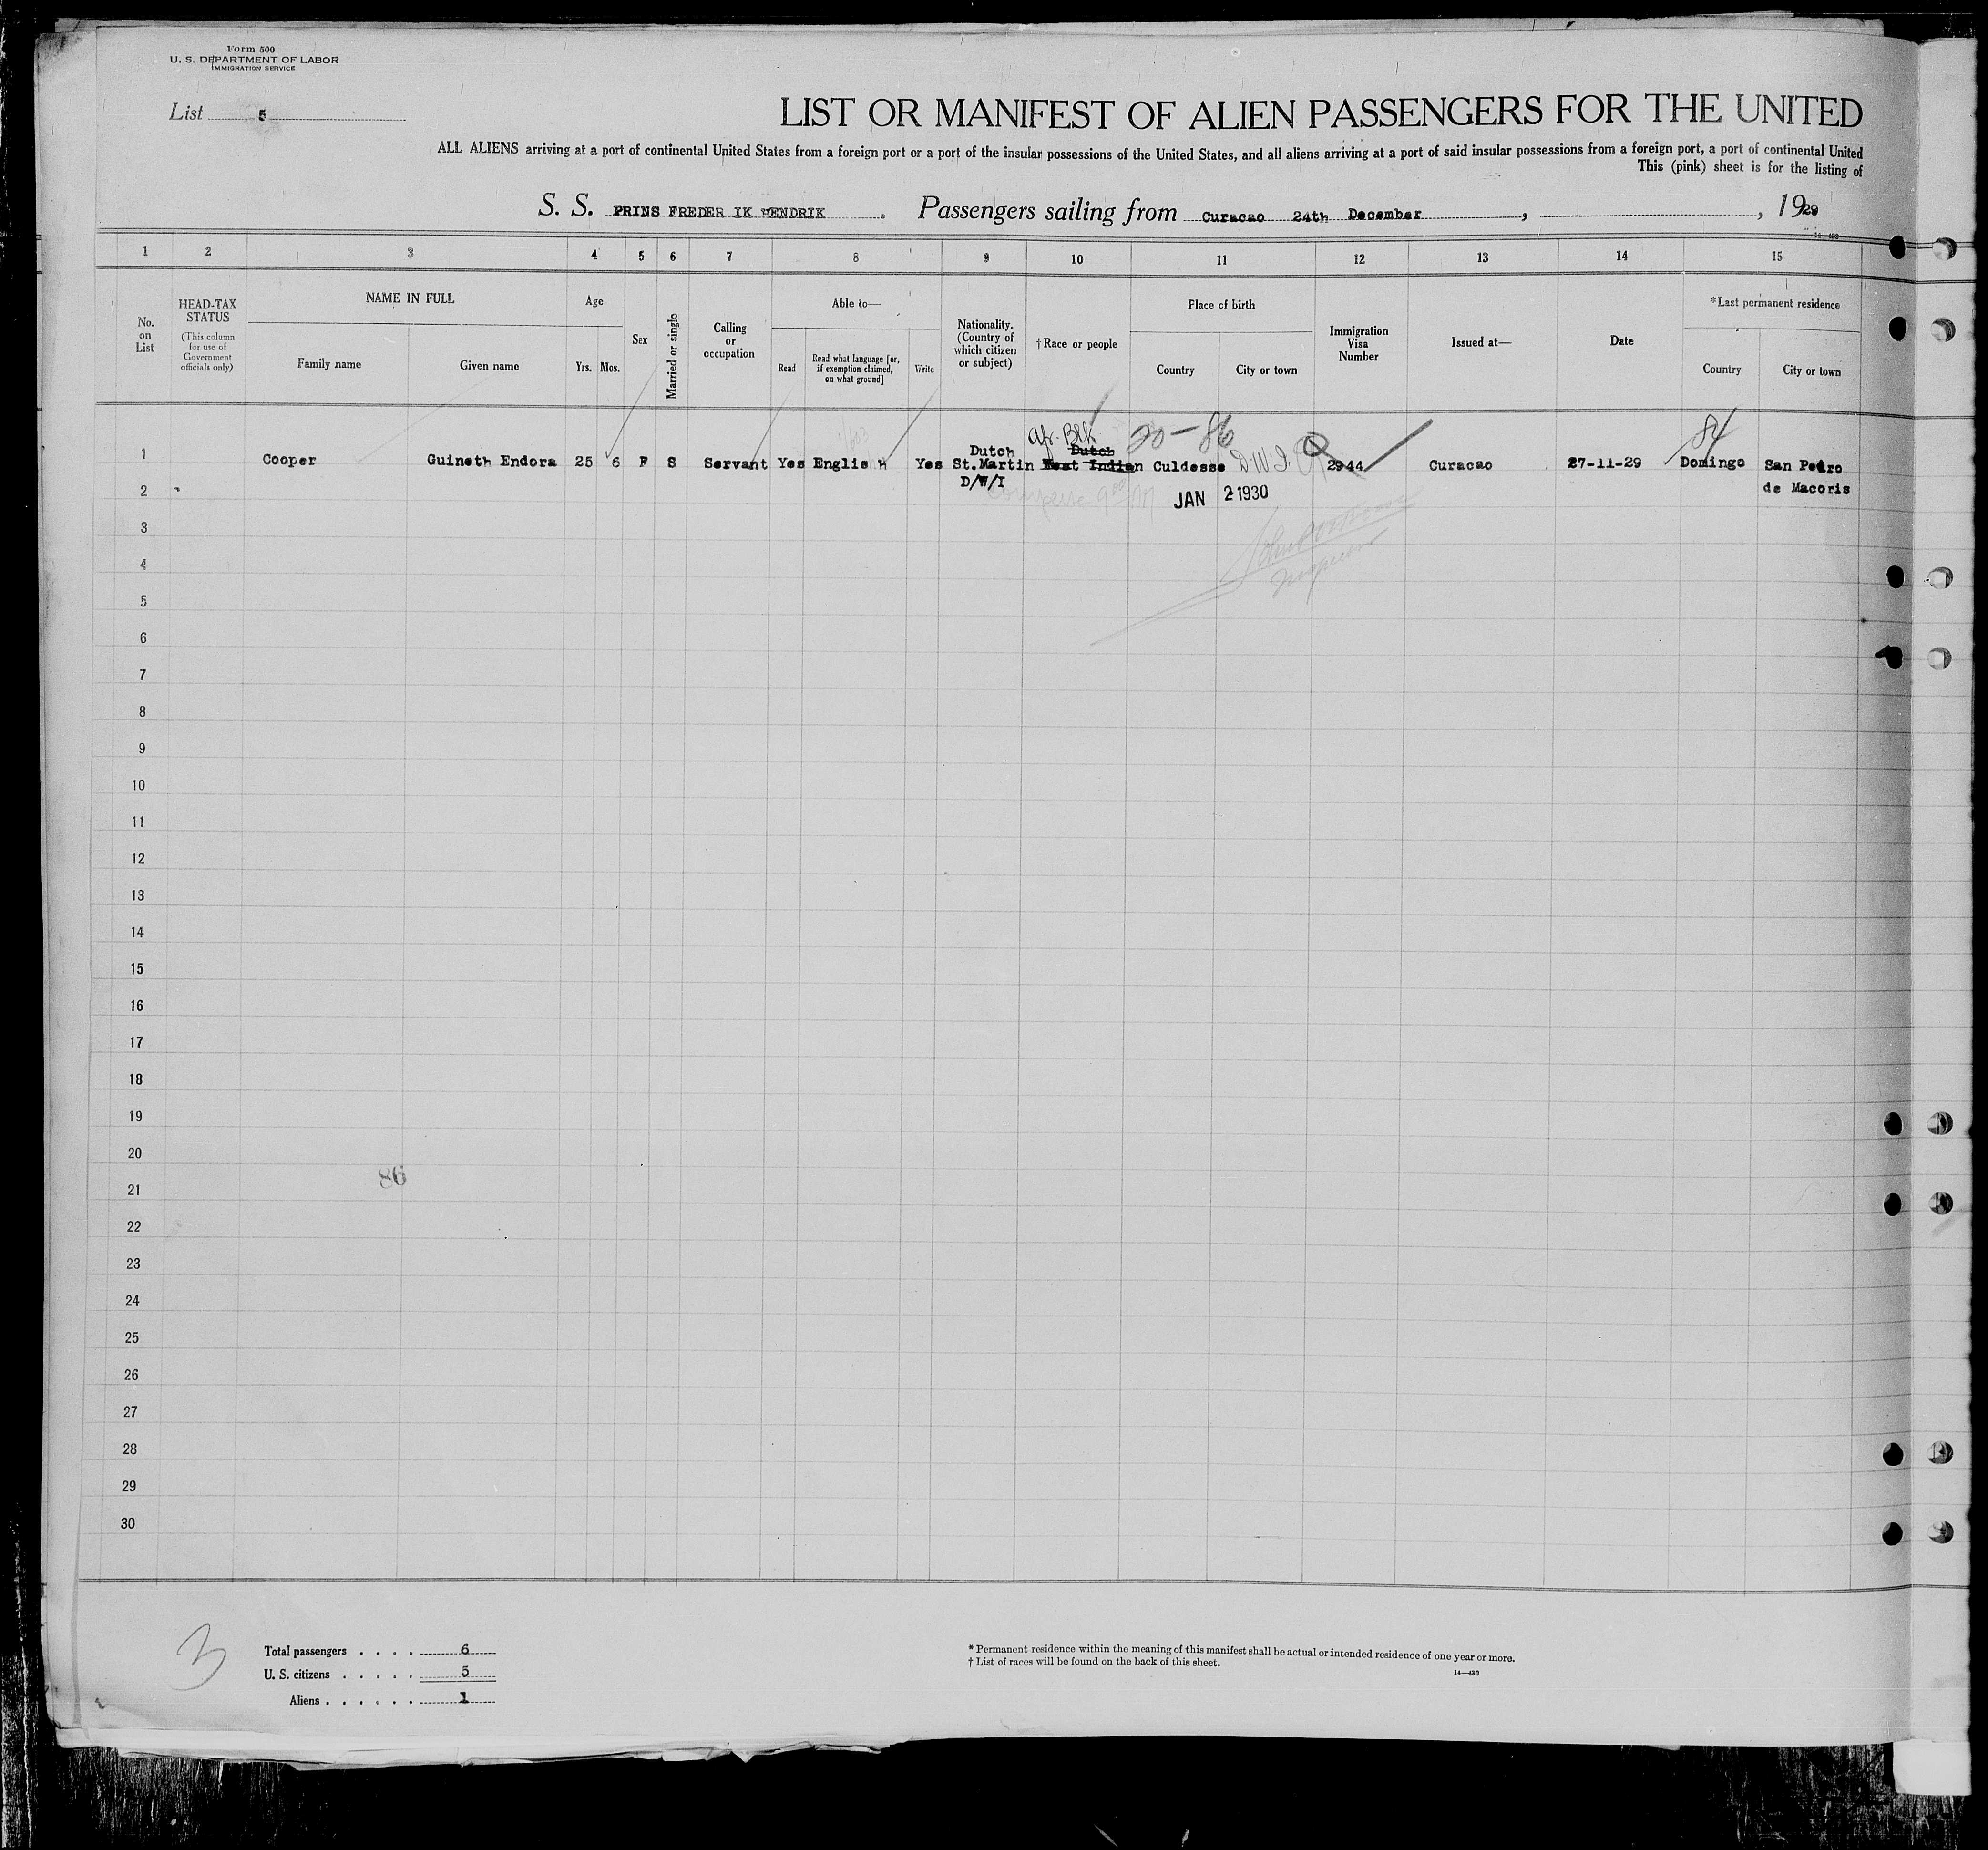 Form 500
U. S. DEPARTMENT OF LABOR
IMMIGRATION SERVICE
List 5
LIST OR MANIFEST OF ALIEN PASSENGERS FOR THE UNITED
ALL ALIENS arriving at a port of continental United States from a foreign port or a port of the insular possessions of the United States, and all aliens arriving at a port of said insular possessions from a foreign port, a port of continental United
This (pink) sheet is for the listing of
S. S. PRINS FREDER IK HENDRIK . Passengers sailing from Curacao 24th December , , 1929
14—430
1 2 3 4 5 6 7 8 9 10 11 12 13 14 15
No. on List
HEAD-TAX STATUS
(This column for use of Government officials only)
NAME IN FULL
Family name
Given name
Age
Yrs. Mos.
Sex
Married or single
Calling or occupation
Able to—
Read
Read what language [or, if exemption claimed, on what ground]
Write
Nationality. (Country of which citizen or subject)
†Race or people
Place of birth
Country
City or town
Immigration Visa Number
Issued at—
Date
*Last permanent residence
Country
City or town
Afr. Blk 20-86 84
Dutch Dutch
1 Cooper Guineth Endora 25 6 F S Servant Yes Englis h Yes St.Martin West Indian Culdesse D.W.I. 2944 Curacao 27-11-29 Domingo San Pedro
D/W/I JAN 2 1930 de Macoris
2
Inspector
3
4
5
6
7
8
9
10
11
12
13
14
15
16
17
18
19
20
86
21
22
23
24
25
26
27
28
29
30
3
Total passengers . . . . 6
U. S. citizens . . . . . 5
Aliens . . . . . . 1
* Permanent residence within the meaning of this manifest shall be actual or intended residence of one year or more.
† List of races will be found on the back of this sheet.
14—430